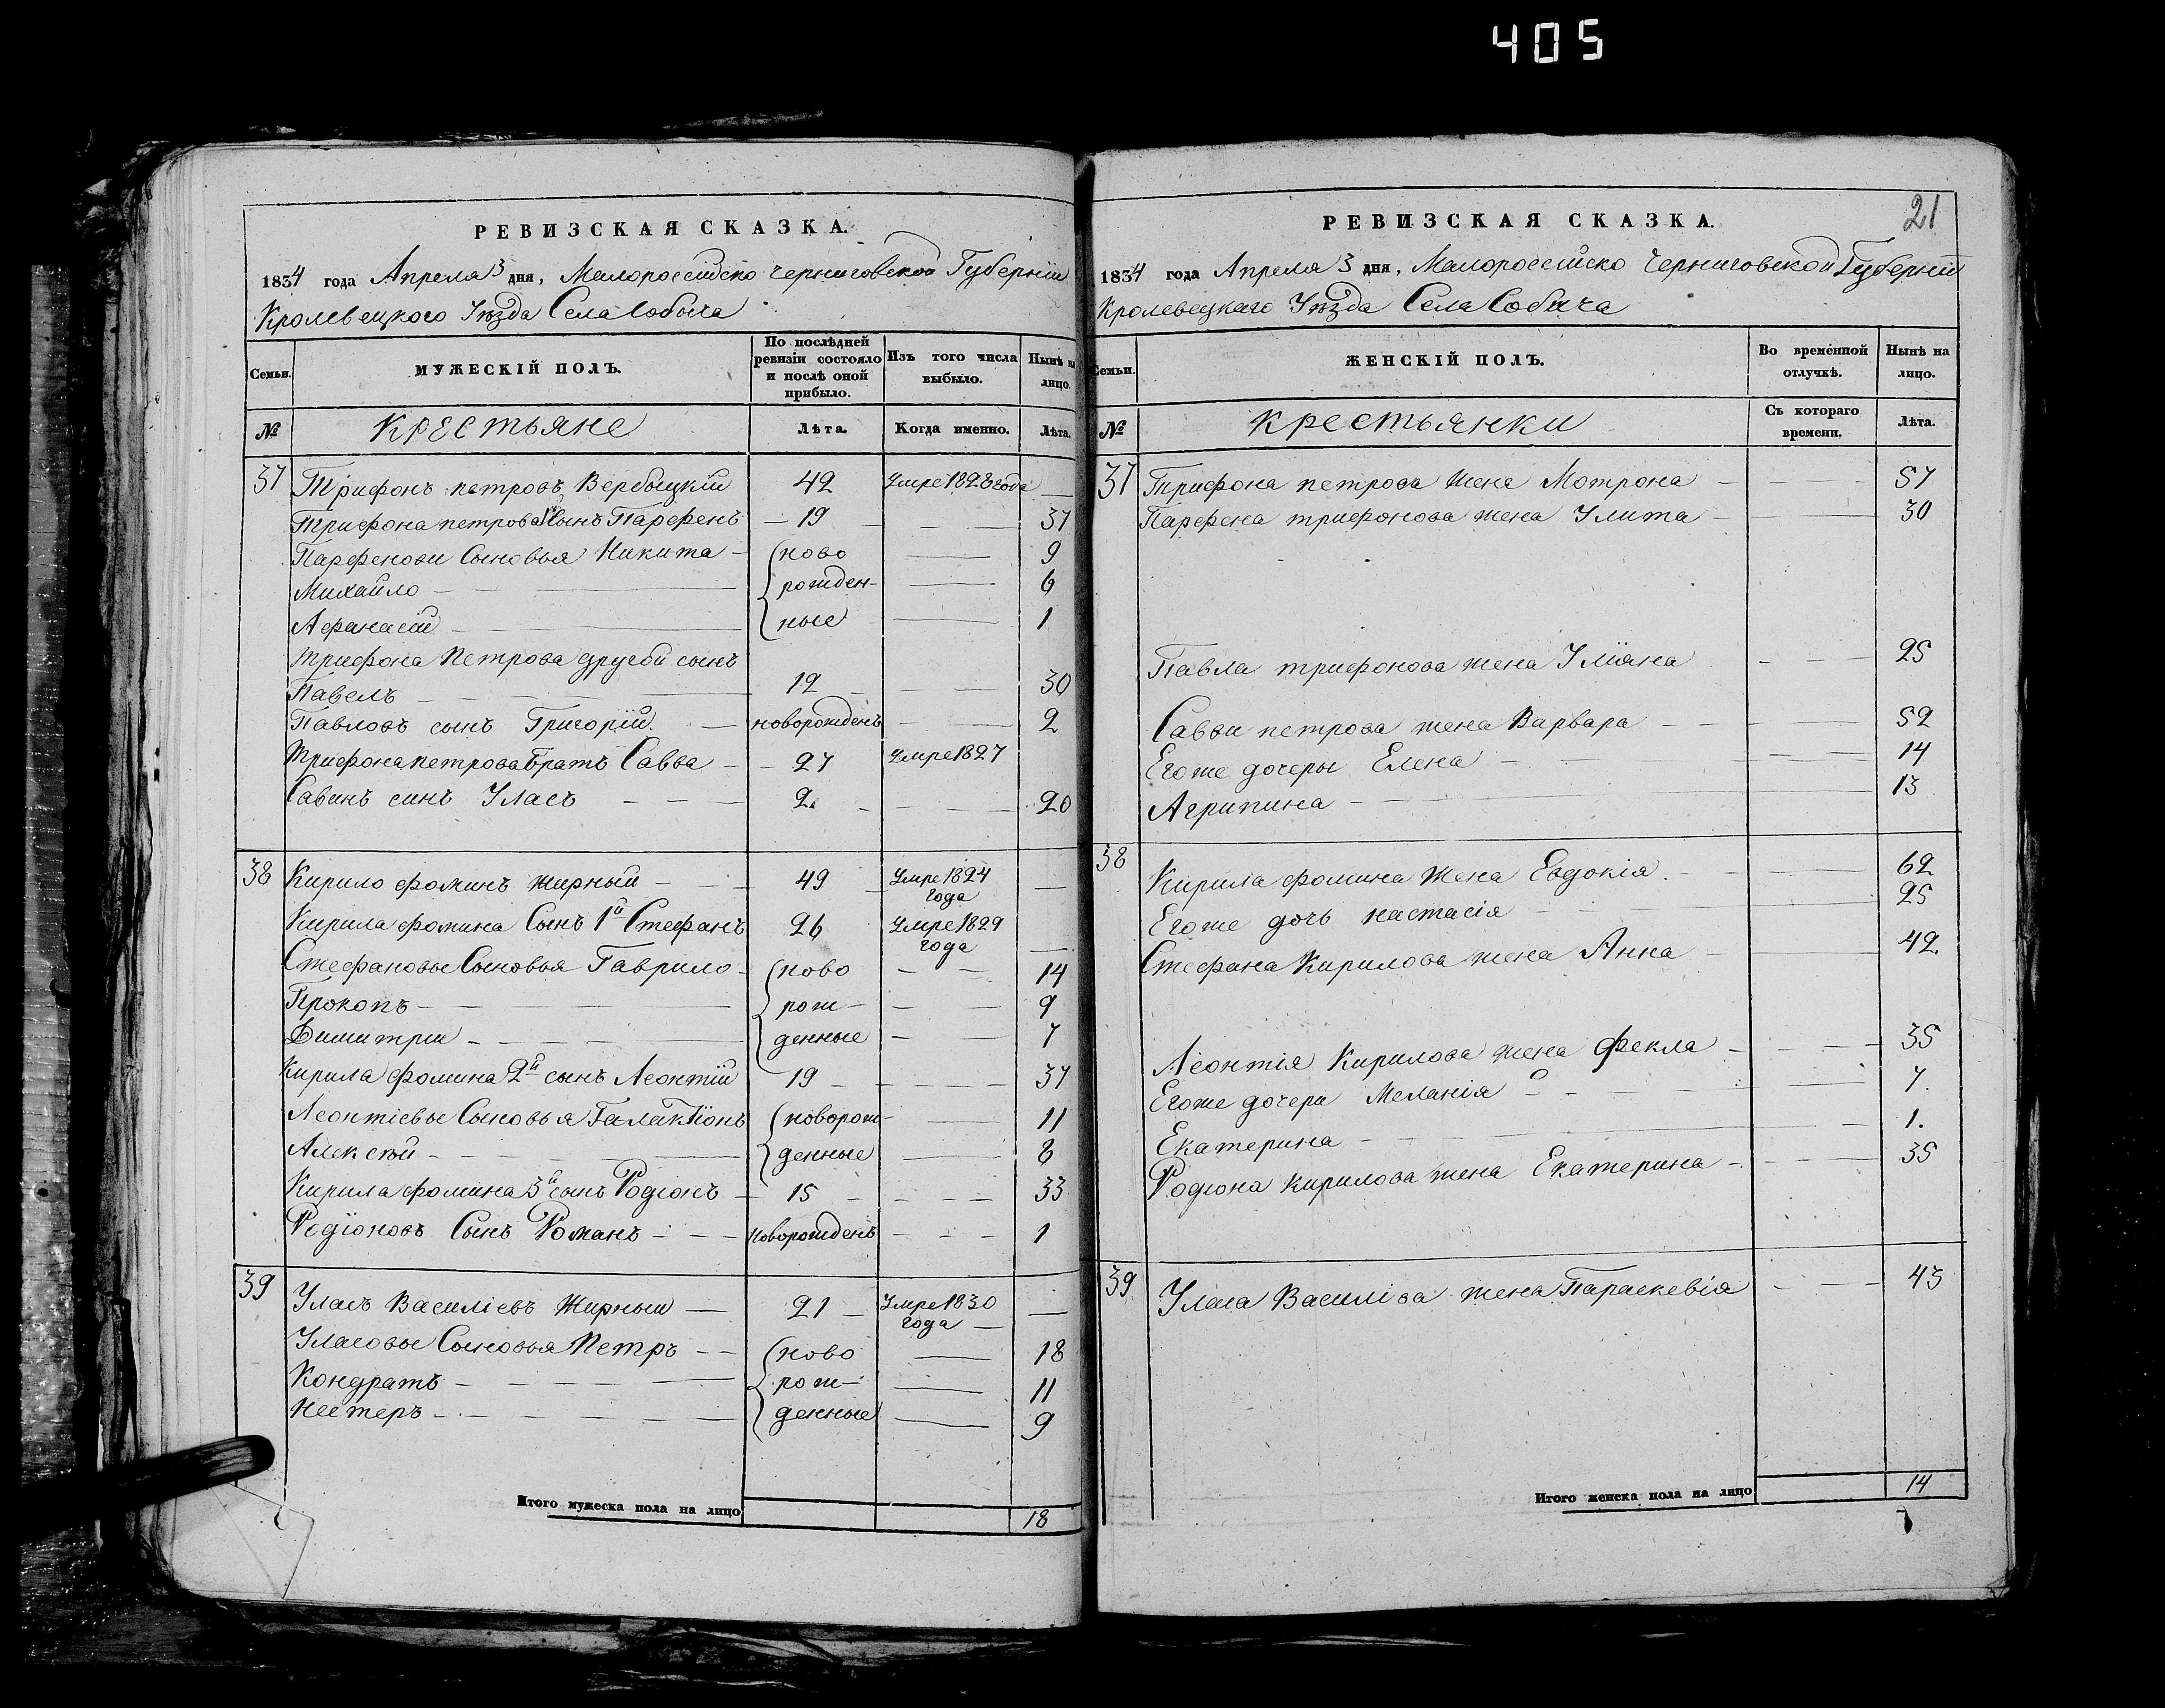 405
РЕВИЗСКАЯ СКАЗКА.
1834 года Апреля 3 дня, Малороссійско Черниговской Губерніи
Кролевецкого Уѣзда Села Собыча
Семьи.
МУЖЕСКІЙ ПОЛЪ.
По послѣдней ревизіи состояло и послѣ оной прибыло.
Изъ того числа выбыло.
Нынѣ на лицо.
№
Крестьяне
Лѣта.
Когда именно.
Лѣта.
37 Трифонъ петровъ Вербыцкій 42 Умре 1828 года —
Трифона петрова 1й сынъ Парфенъ — 19 — — — 37
Парфенови Сыновья Никита — ново — 9
Михайло — — — рожден- — 6
Афанасій — — ные — 1
трифона Петрова другой сынъ
Павелъ — — — 12 — — — 30
Павловъ сынъ Григорій. — новорожденъ — — 2
Трифона петрова братъ Савва — — 27 Умре 1827
Савинъ синъ Уласъ — — — 2. — — — 20
38 Кирило фоминъ жирный — — — 49 — Умре 1824 —
года
Кирила фомина Сынъ 1й Стефанъ 26 Умре 1829
года —
Стефановы Сыновья Гаврило — ново — — 14
Прокопъ — — — рож — — — 9
Димитрии — — — — денные — — 7
Кирила фомина 2й сынъ Леонтій 19 — — — — 37
Леонтіевы Сыновья Галактіонъ новорож- — 11
Алексѣй — — — — денные — 8
Кирила фомина 3й сынъ Родіонъ — 15 — — — — 33
Родіоновъ Сынъ Романъ — — — новорожденъ — — — 1
39 Уласъ Василіевъ Жирный — 21 — Умре 1830 —
года —
Уласовы Сыновья Петръ — — ново — 18
Кондратъ — — — — — рож — — 11
Нестеръ — — — — — — денные — 9
Итого мужеска пола на лицо 18
21
РЕВИЗСКАЯ СКАЗКА.
1834 года Апреля 3 дня, Малороссійско Черниговской Губерніи
Кролевецкаго Уѣзда Села Собича
Семьи.
ЖЕНСКІЙ ПОЛЪ.
Во временной отлучкѣ.
Нынѣ на лицо.
№
Крестьянки
Съ котораго времени.
Лѣта.
37 Трифона петрова жена Мотрона — — — — 57
Парфена трифонова жена Улита — — 30
Павла трифонова жена Уліяна — — — 25
Савви петрова жена Варвара — — — 52
Егоже дочеры Елена — — — — 14
Агрипина — — — 13
38 Кирила фомина жена Евдокія. — — — 62
Егоже дочь настасія — — — 25
Стефана Кирилова жена Анна — — 42
Леонтія Кирилова жена Фекла — — — — 35
Егоже дочери Меланія — — — — 7.
Екатерина — — — — 1.
Родіона Кирилова жена Екатерина — — — — 35
39 Уласа Василіва жена Параскевія — — — 43
Итого женска пола на лицо 14